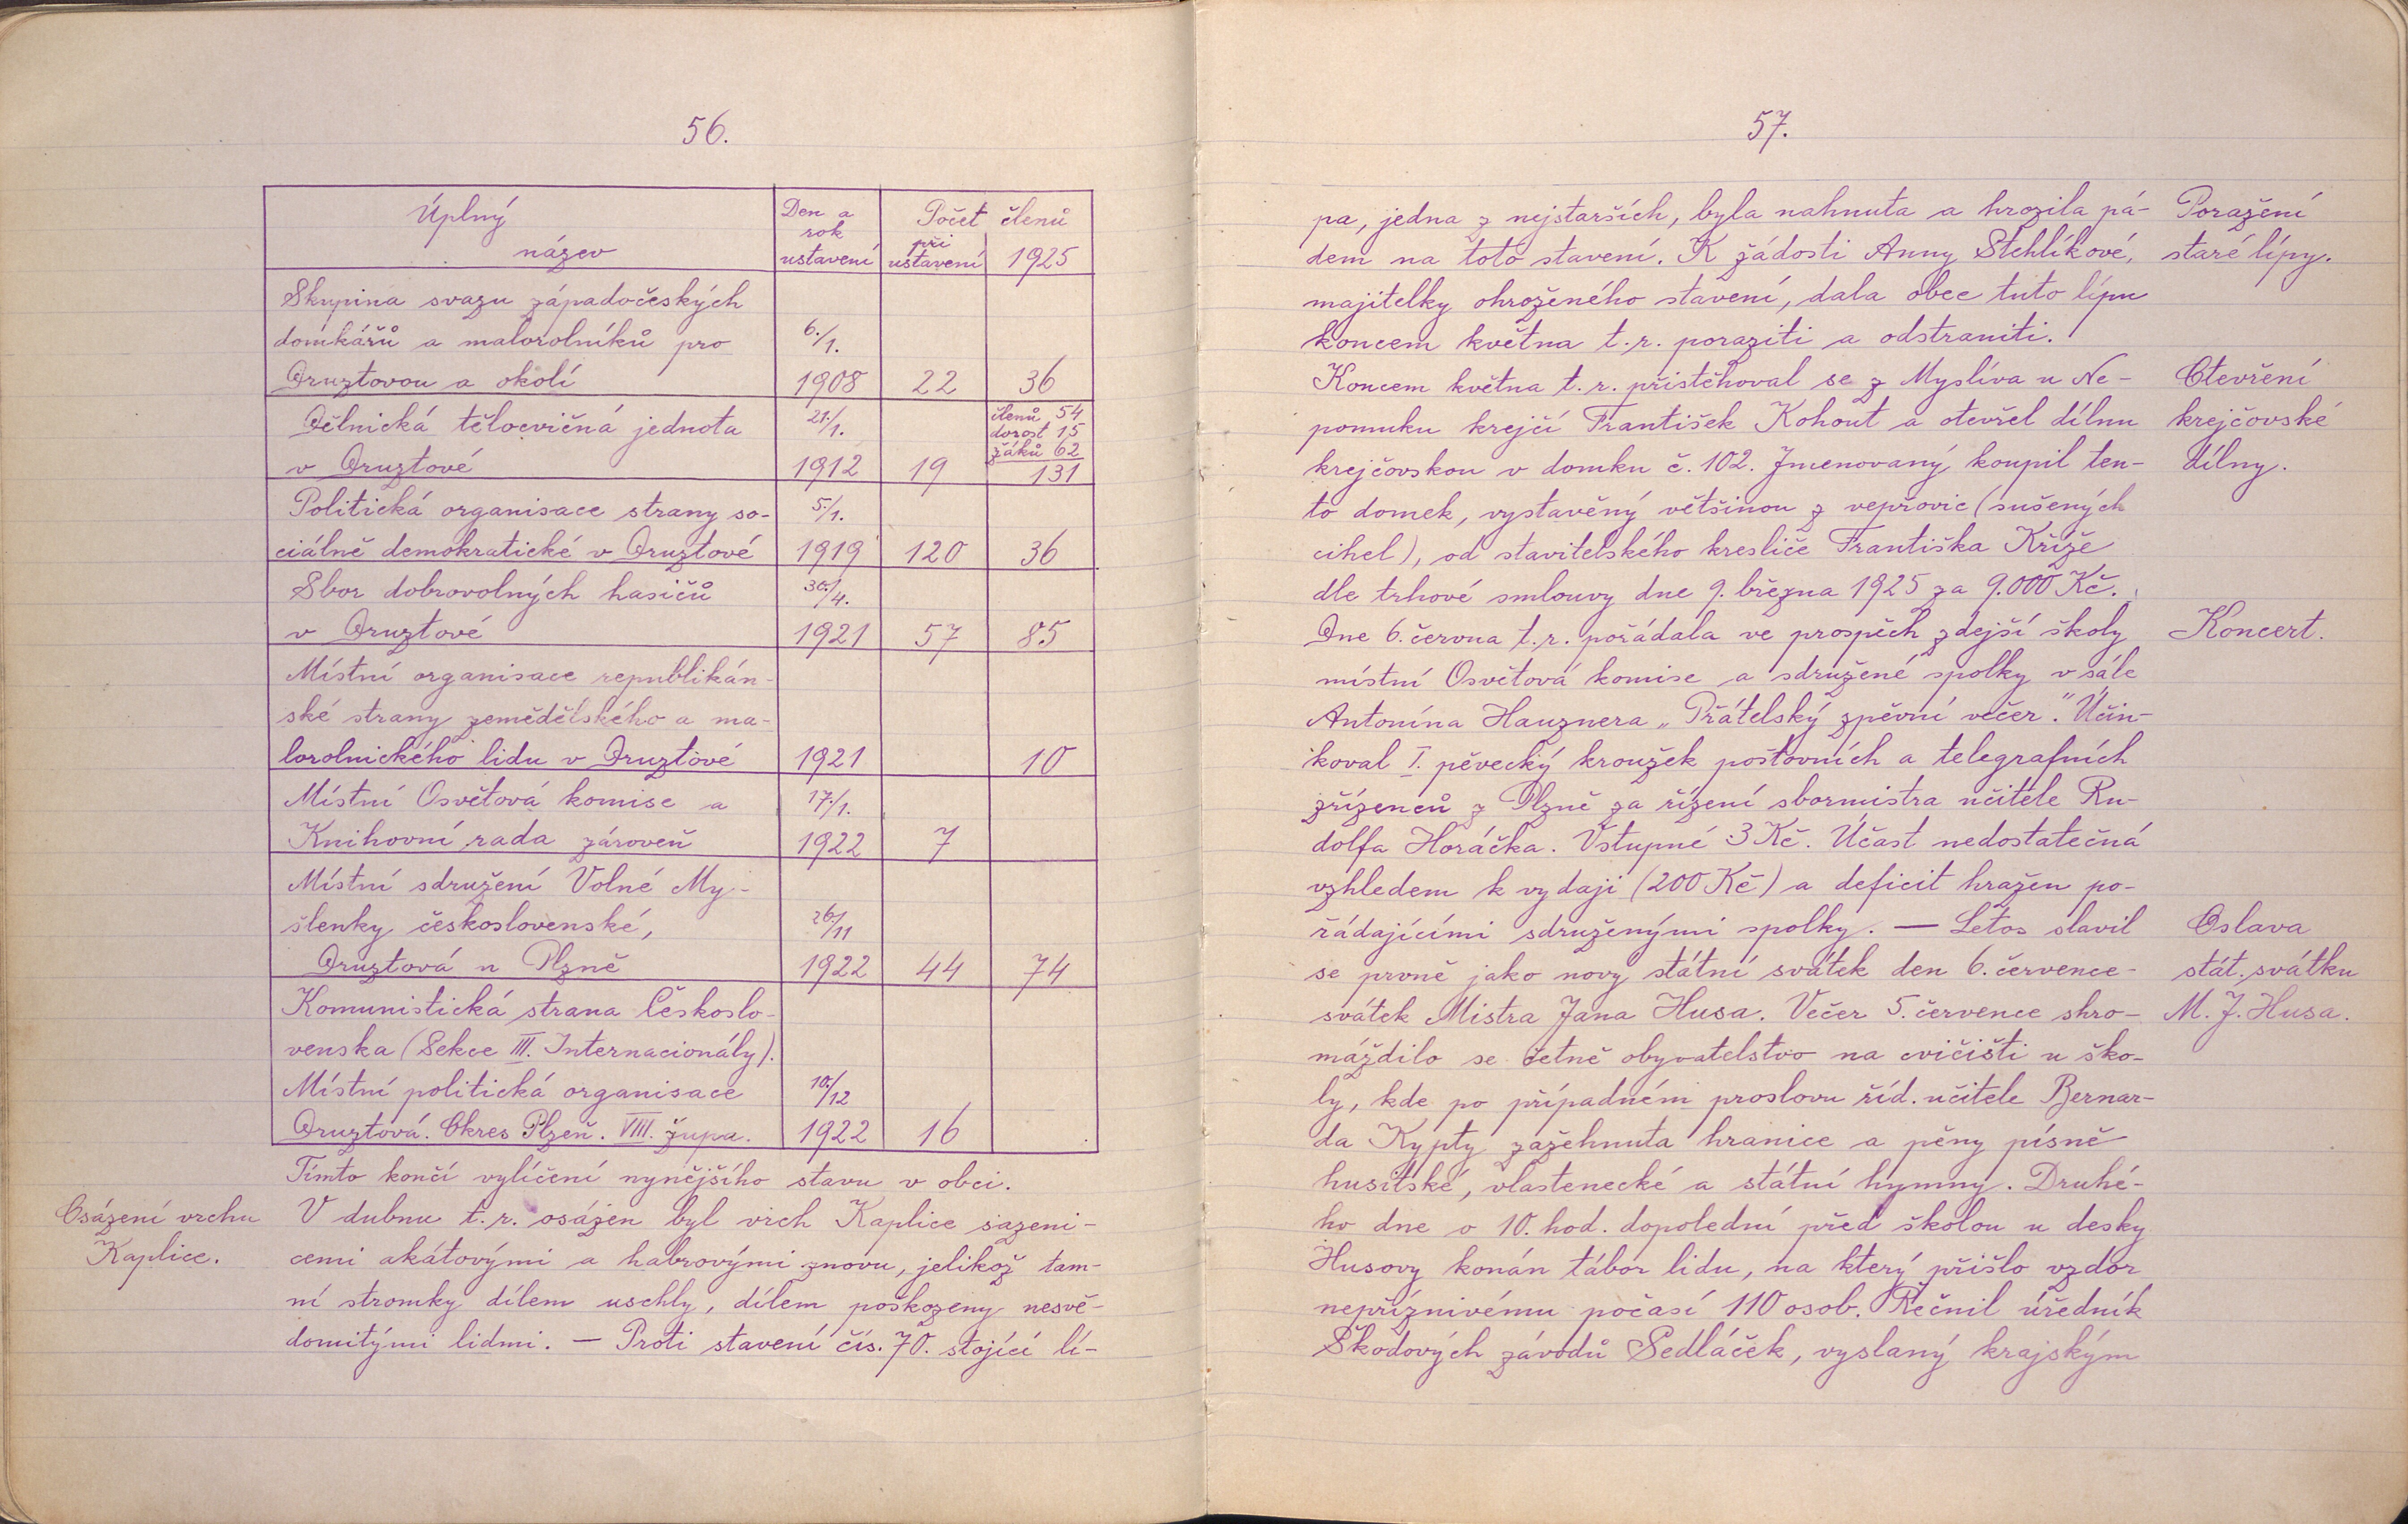 56.
Úplný
název
Den a
rok
ustavení
Počet členů
při
ustavení
1925
Skupina svazu západočeských
domkářů a malorolníků pro 6./1.
Druztovou a okolí 1908 22 36
Dělnická tělocvičná jednota 21./1. členů 54
dorost 15
žáků 62
v Druztové 1912 19 131
Politická organisace strany so- 5./1.
ciálně demokratické v Druztové 1919 120 36
Sbor dobrovolných hasičů 30./4.
v Druztové 1921 57 85
Místní organisace republikán-
ské strany zemědělského a ma-
lorolnického lidu v Druztové 1921 10
Místní Osvětová komise a 17./1.
Knihovní rada zároveň 1922 7
Místní sdružení Volné My-
šlenky československé, 26./11
Druztová u Plzně 1922 44 74
Komunistická strana Českoslo-
venska (Sekce III. Internacionály).
Místní politická organisace 10./12
Druztová. Okres Plzeň. VIII. župa. 1922 16
Tímto končí vylíčení nynějšího stavu v obci.
Osázení vrchu
Kaplice.
V dubnu t.r. osázen byl vrch Kaplice sazeni-
cemi akátovými a habrovými znovu, jelikož tam-
ní stromky dílem uschly, dílem poškozeny nesvě-
domitými lidmi. — Proti stavení čís. 70. stojící lí-
57.
pa, jedna z nejstarších, byla nahnuta a hrozila pá-
dem na toto stavení. K žádosti Anny Stehlíkové,
majitelky ohroženého stavení, dala obec tuto lípu
koncem května t.r. poraziti a odstraniti.
Poražení
staré lípy.
Koncem května t.r. přistěhoval se z Myslíva u Ne-
pomuku krejčí František Kohout a otevřel dílnu
krejčovskou v domku č. 102. Jmenovaný koupil ten-
to domek, vystavěný většinou z vepřovic (sušených
cihel), od stavitelského kresliče Františka Kříže
dle trhové smlouvy dne 9. března 1925 za 9.000 Kč.
Otevření
krejčovské
dílny.
Dne 6. června t.r. pořádala ve prospěch zdejší školy
místní Osvětová komise a sdružené spolky v sále
Antonína Hauznera „Přátelský zpěvní večer." Účin-
koval I. pěvecký kroužek poštovních a telegrafních
zřízenců z Plzně za řízení sbormistra učitele Ru-
dolfa Horáčka. Vstupné 3 Kč. Účast nedostatečná
vzhledem k vydaji (200 Kč) a deficit hražen po-
řádajícími sdruženými spolky. — Letos slavil
Koncert.
se prvně jako nový státní svátek den 6. července -
svátek Mistra Jana Husa. Večer 5. července shro-
máždilo se četně obyvatelstvo na cvičišti u ško-
ly, kde po případném proslovu říd. učitele Bernar-
da Kypty zažehnuta hranice a pěny písně
husitské, vlastenecké a státní hymny. Druhé-
ho dne o 10. hod. dopolední před školou u desky
Husovy konán tábor lidu, na který přišlo vzdor
nepříznivému počasí 110 osob. Řečnil úředník
Škodových závodů Sedláček, vyslaný krajským
Oslava
stát. svátku
M. J. Husa.